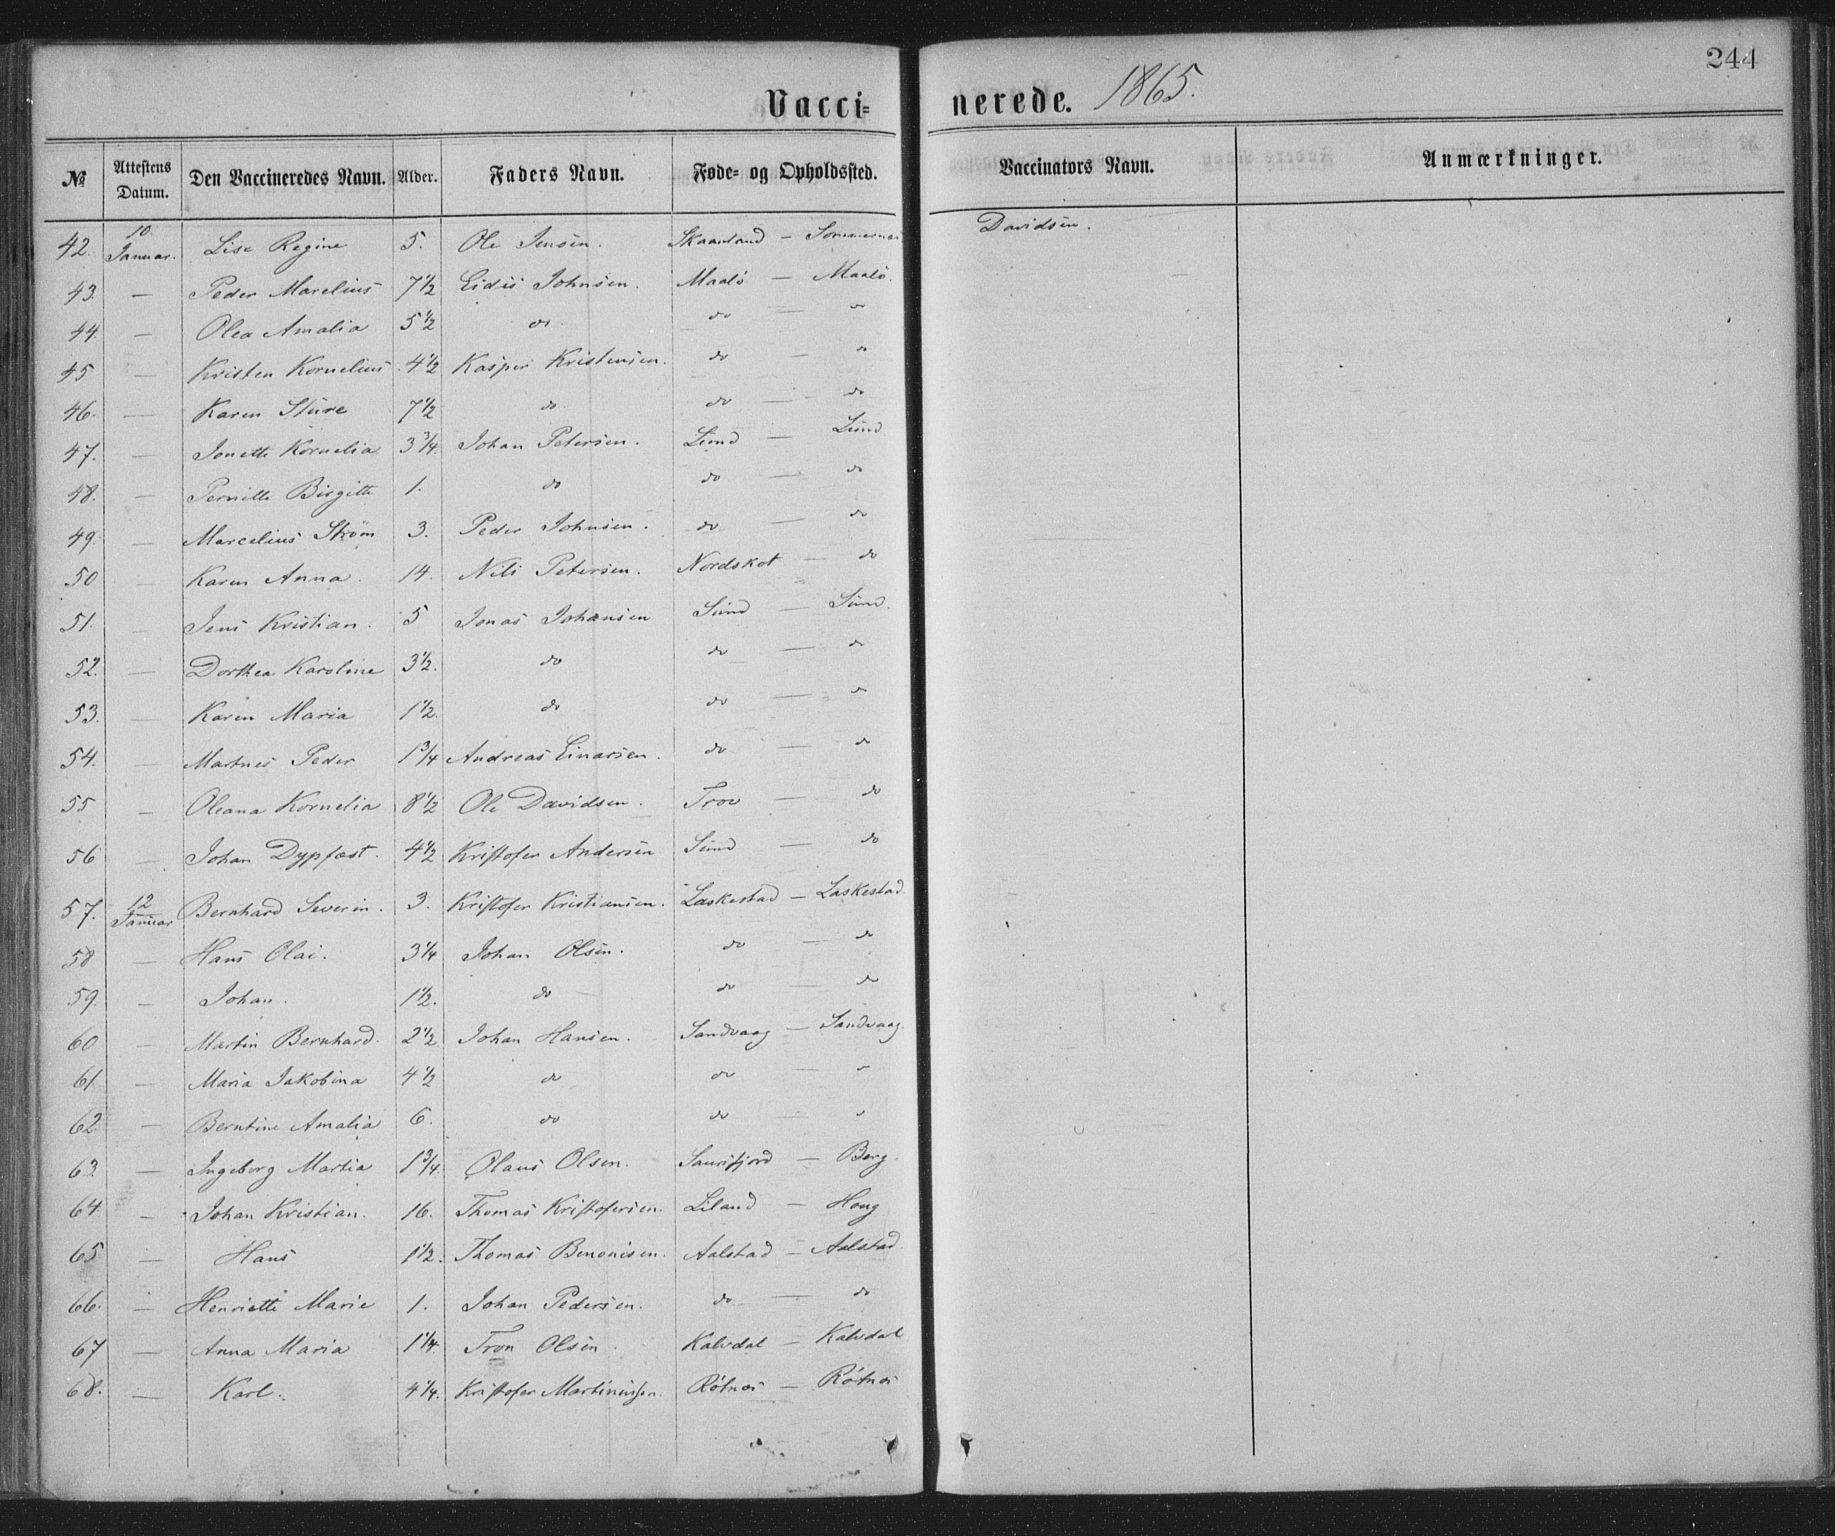 244
Vacci- nerede. 1865.
№ Attestens Datum. Den Vaccineredes Navn. Alder. Faders Navn. Føde- og Opholdssted. Vaccinators Navn. Anmærkninger.
42. 10. Januar. Lise Regine 5. Ole Jensen. Skaanland — Davidsen.
43. — Peder Marelius 7½ Eidis Johnsen. Maalö — Maalö.
44. — Olea Amalia 5½ do. do — "
45 — Kristen Kornelius 4½ Kasper Kristensen. do — "
46. — Karen Sture 7½ do do — do
47. — Jonette Kornelia 3¾. Johan Petersen. Lund — Lund
48. — Pernille Birgitte 1. do do — do
49. — Marcelius Strøm 3. Peder Johnsen. do — do
50 — Karen Anna. 14. Nils Petersen. Nordskot — do
51. — Jens Kristian. 5 Jonas Johansen Sund — Sund.
52. — Dorthea Karoline 3½. do do — "
53. — Karen Maria 1½. do do — "
54. — Martnes Peder 1¾ Andreas Einarsen. do — "
55 — Oleana Kornelia 8½ Ole Davidsen. Trov — do
56 — Johan Dypfest. 4½ Kristofer Andersen Sund — do
57. 12 Januar Bernhard Severin. 3. Kristofer Kristiansen. Laskestad — Laskestad.
58 — Hans Olai. 3¼ Johan Olsen. do — do
59. — Johan. 1½. do do — do
60 — Martin Bernhard. 2½ Johan Hansen. Sandvaag — Sandvaag.
61 — Maria Jakobina 4½ do do — "
62 — Berntine Amalia 6. do do — "
63. — Ingeborg Martia 1¾. Olaus Olsen. — Berg.
64. — Johan Kristian. 16. Thomas Kristofersen. Liland — Houg
65 — Hans 1½. Thomas Benonisen. Aalstad — Aalstad.
66. — Henriette Marie 1. Johan Pedersen. do — do
67 — Anna Maria 1¼. Tron Olsen. Kalvdal — Kalvdal
68. — Karl. 4¼. Kristofer Martinussen. Rötnes — Rötnes